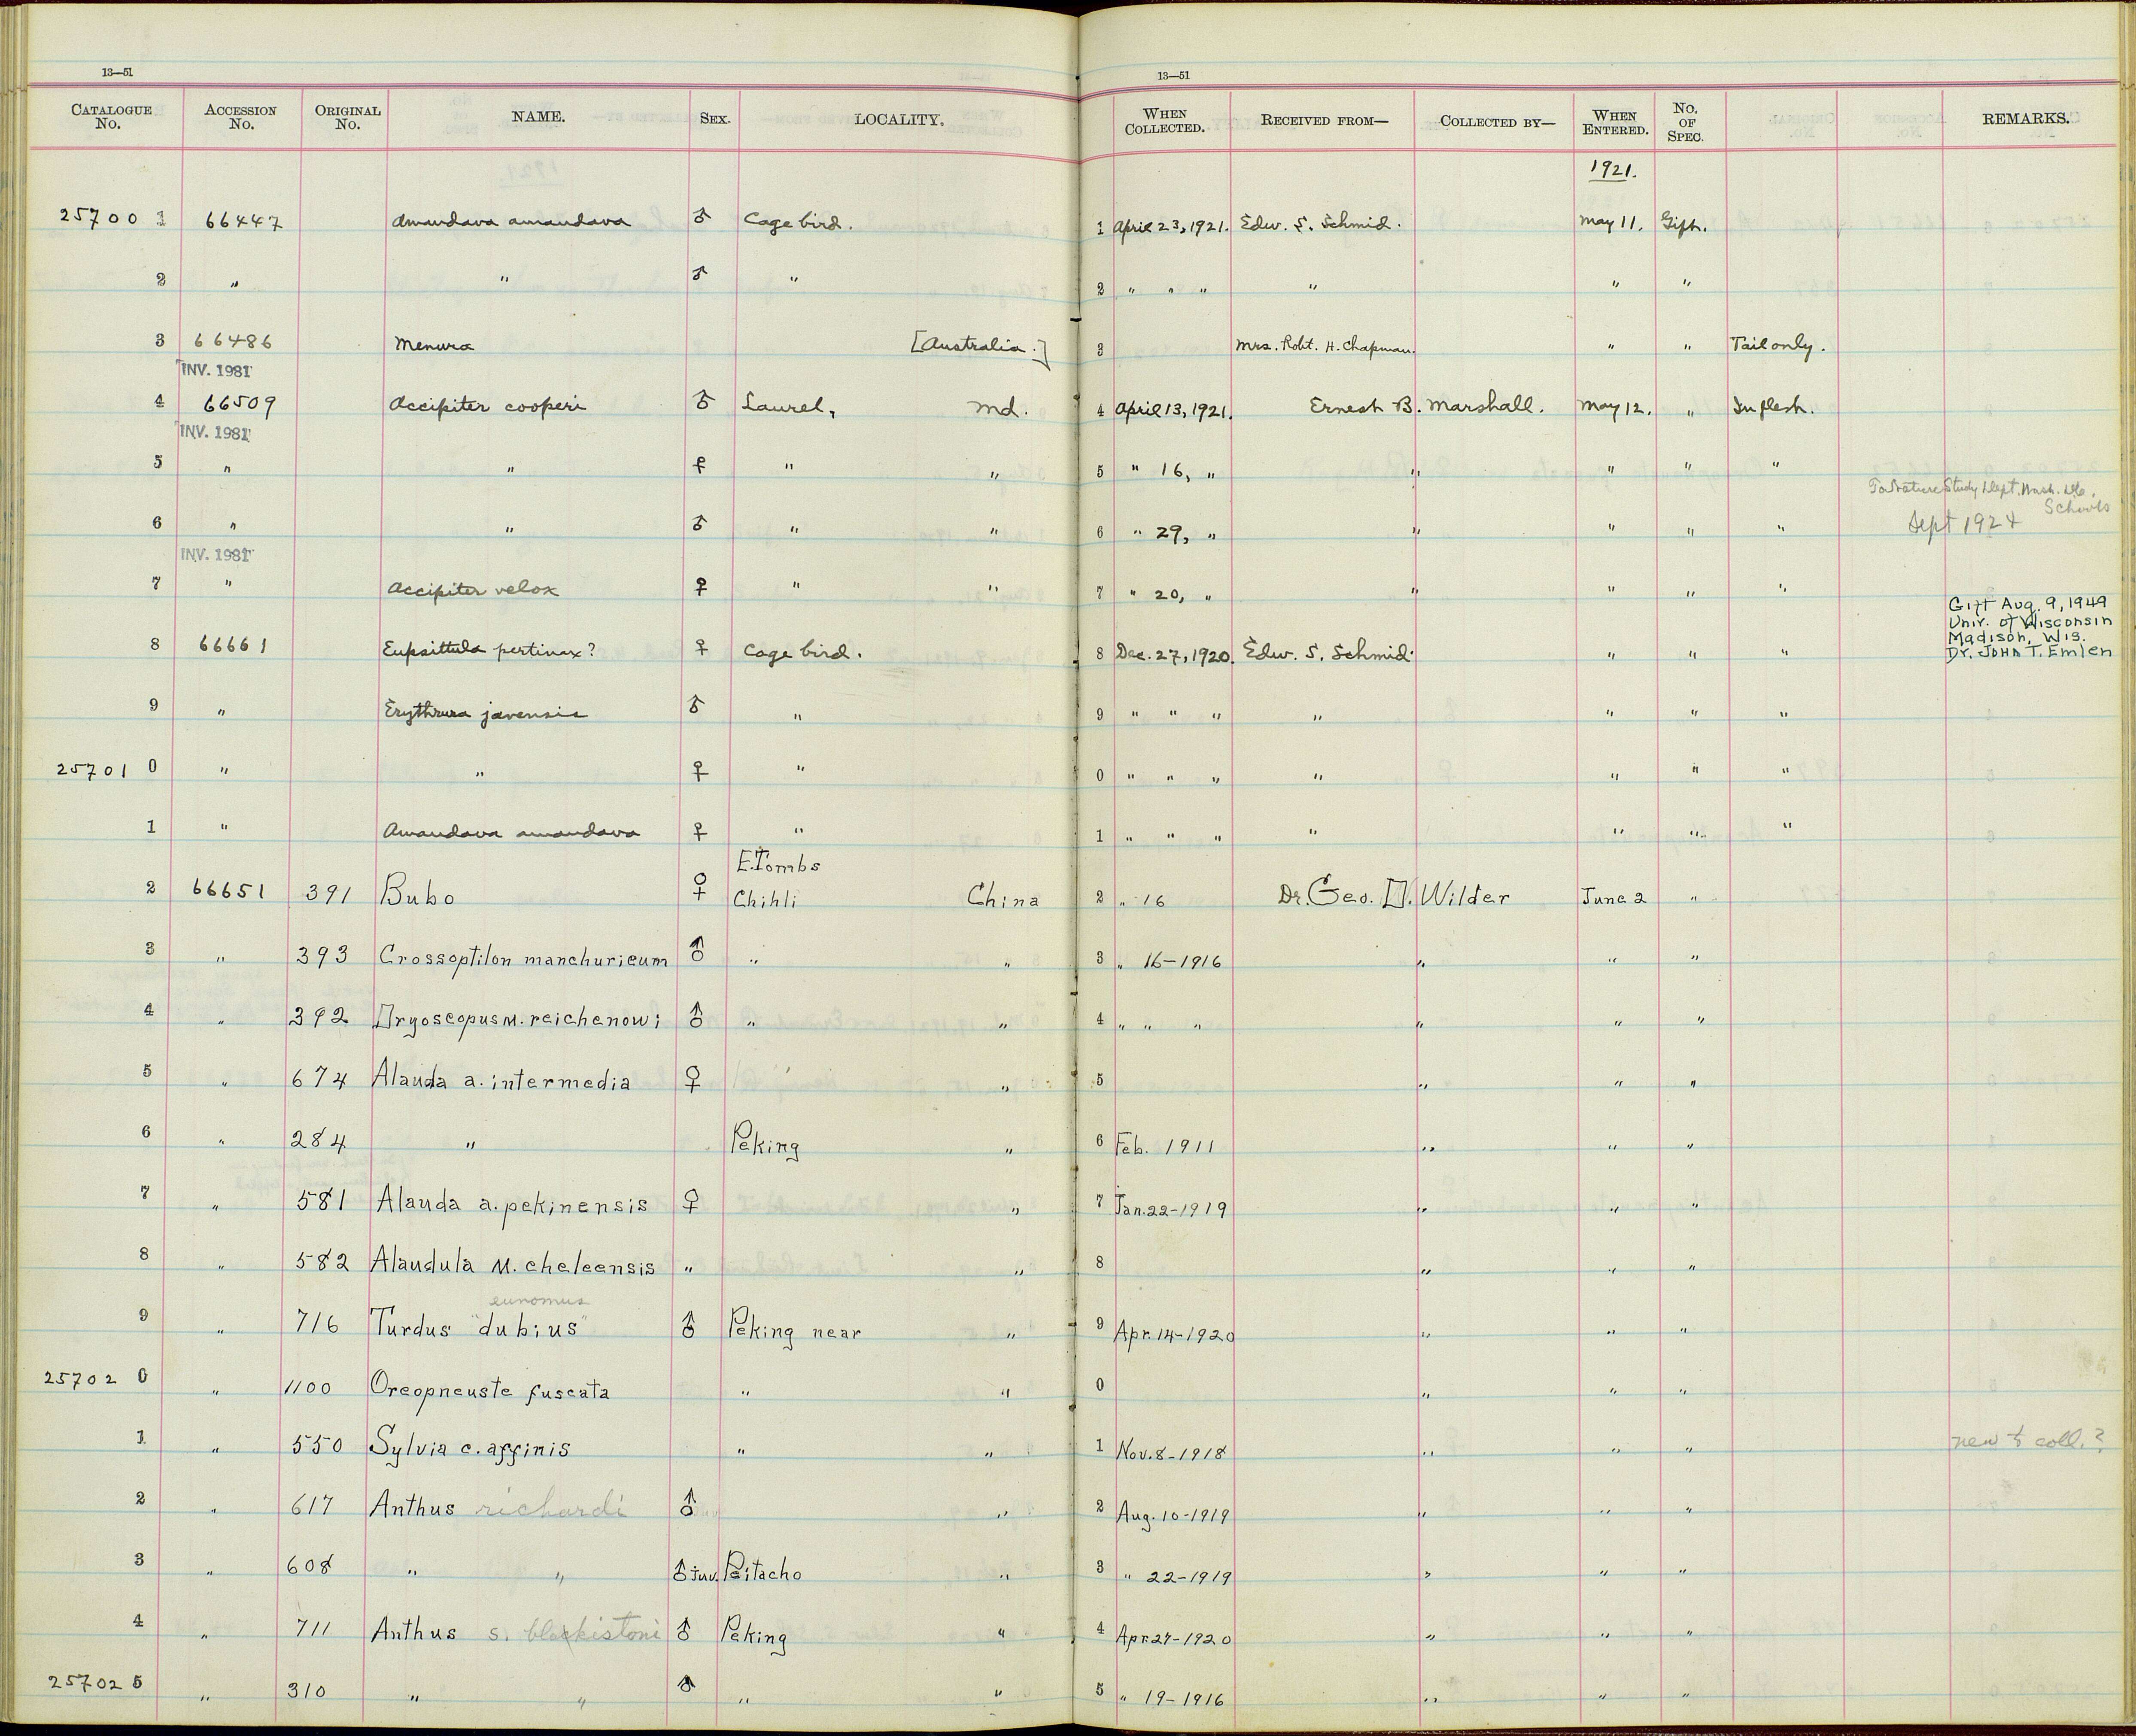 13—51
13—51
CATALOGUE No. ACCESSION No. ORIGINAL No. NAME. SEX. LOCALITY. WHEN COLLECTED. RECEIVED FROM— COLLECTED BY— WHEN ENTERED. NO. OF SPEC. REMARKS.
1921.
25700 1 66447 Amandava amandava ♂ Cage bird. 1 April 23, 1921. Edw. S. Schmid. May 11. Gift.
2 " " ♂ " 2 " " " " " "
3 66486 Menura [Australia.] 3 Mrs. Robt. H. Chapman. " " Tail only.
INV. 1981
4 66509 Accipiter cooperi ♂ Laurel, Md. 4 April 13, 1921. Ernest B. Marshall. May 12. " In flesh.
INV. 1981
5 " " ♀ " " 5 " 16, " " " " "
To Nature Study Dept. Wash. D.C. Schools
6 " " ♂ " " 6 " 29, " " " " " Sept 1924
INV. 1981
7 " Accipiter velox ♀ " " 7 " 20, " " " " "
Gift Aug. 9, 1949
Univ. of Wisconsin
Madison, Wis.
Dr. John T. Emlen
8 66661 Eupsittula pertinax? ♀ Cage bird. 8 Dec. 27, 1920. Edw. S. Schmid. " " "
9 " Erythrura javensis ♂ " 9 " " " " " " "
25701 0 " " ♀ " 0 " " " " " " "
1 " Amandava amandava ♀ " 1 " " " " " " "
E. Tombs
2 66651 391 Bubo ♀ Chihli China 2 " 16 Dr. Geo. D. Wilder June 2 "
3 " 393 Crossoptilon manchuricum ♂ " " 3 " 16-1916 " " "
4 " 392 Dryoscopus M. reichenowi ♂ " " 4 " " " " " "
5 " 674 Alauda a. intermedia ♀ " 5 " " "
6 " 284 " Peking " 6 Feb. 1911 " " "
7 " 581 Alauda a. pekinensis ♀ " 7 Jan. 22-1919 " " "
8 " 582 Alaudula M. cheleensis " " 8 " " "
eunomus
9 " 716 Turdus "dubius" ♂ Peking near " 9 Apr. 14-1920 " " "
25702 0 " 1100 Oreopneuste fuscata " " 0 " " "
1 " 550 Sylvia c. affinis " " 1 Nov. 8-1918 " " " new to coll.?
2 " 617 Anthus richardi ♂ " 2 Aug. 10-1919 " " "
3 " 608 " " ♂ juv. Peitacho " 3 " 22-1919 " " "
4 " 711 Anthus s. blakistoni ♂ Peking " 4 Apr. 27-1920 " " "
25702 5 " 310 " " ♂ " " 5 " 19-1916 " " "